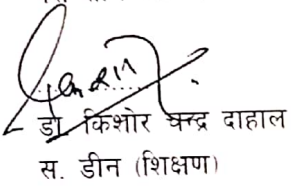 डा. किशोर चन्द्र दाहाल
स. डीन (शिक्षण)